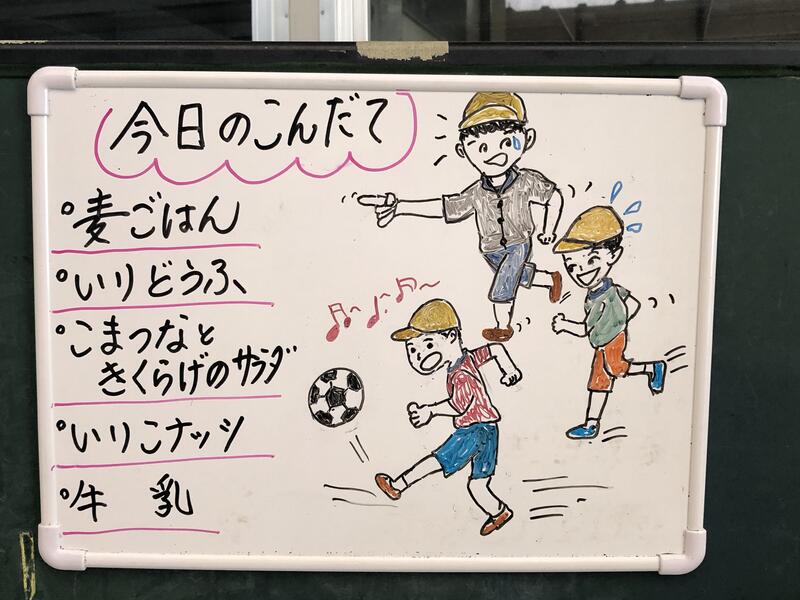 今日のこんだて
°麦ごはん
°いりどうふ
°こまつなと
きくらげのサラダ
°いりこナッツ
°牛 乳